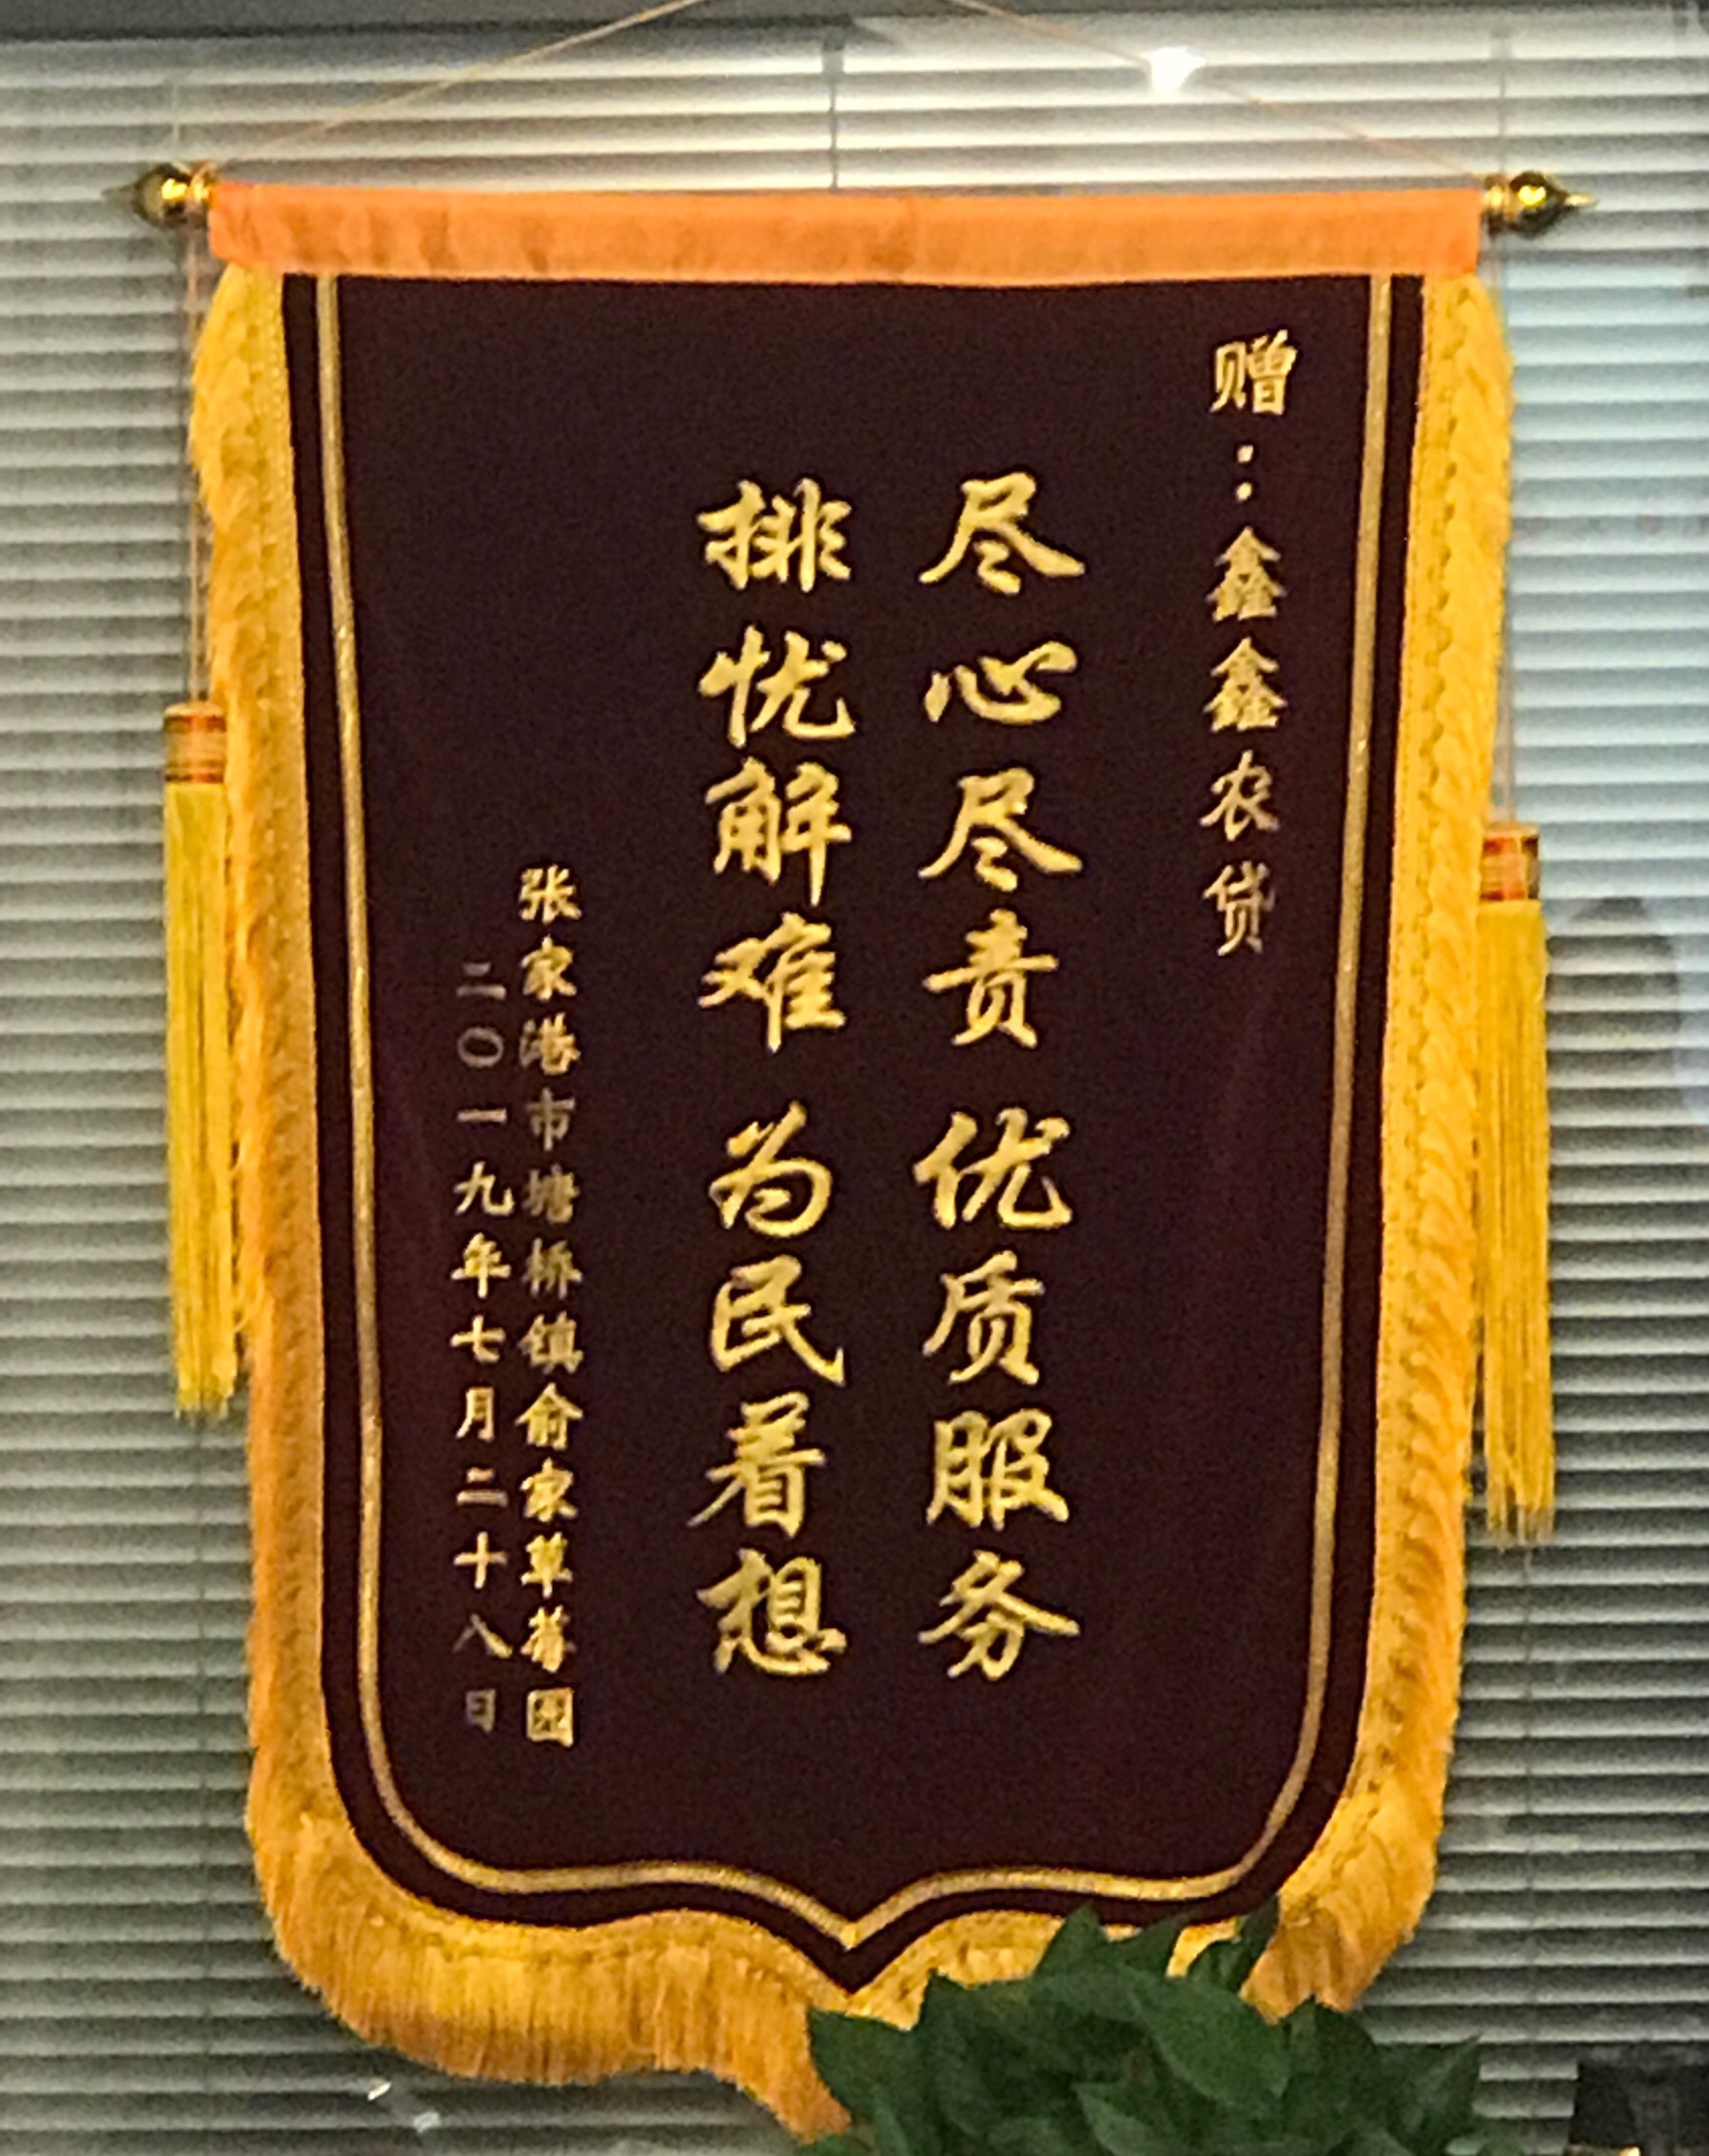 赠:鑫鑫农贷
尽心尽责 优质服务
排忧解难 为民着想
张家港市塘桥镇俞家草莓园
二〇一九年七月二十八日